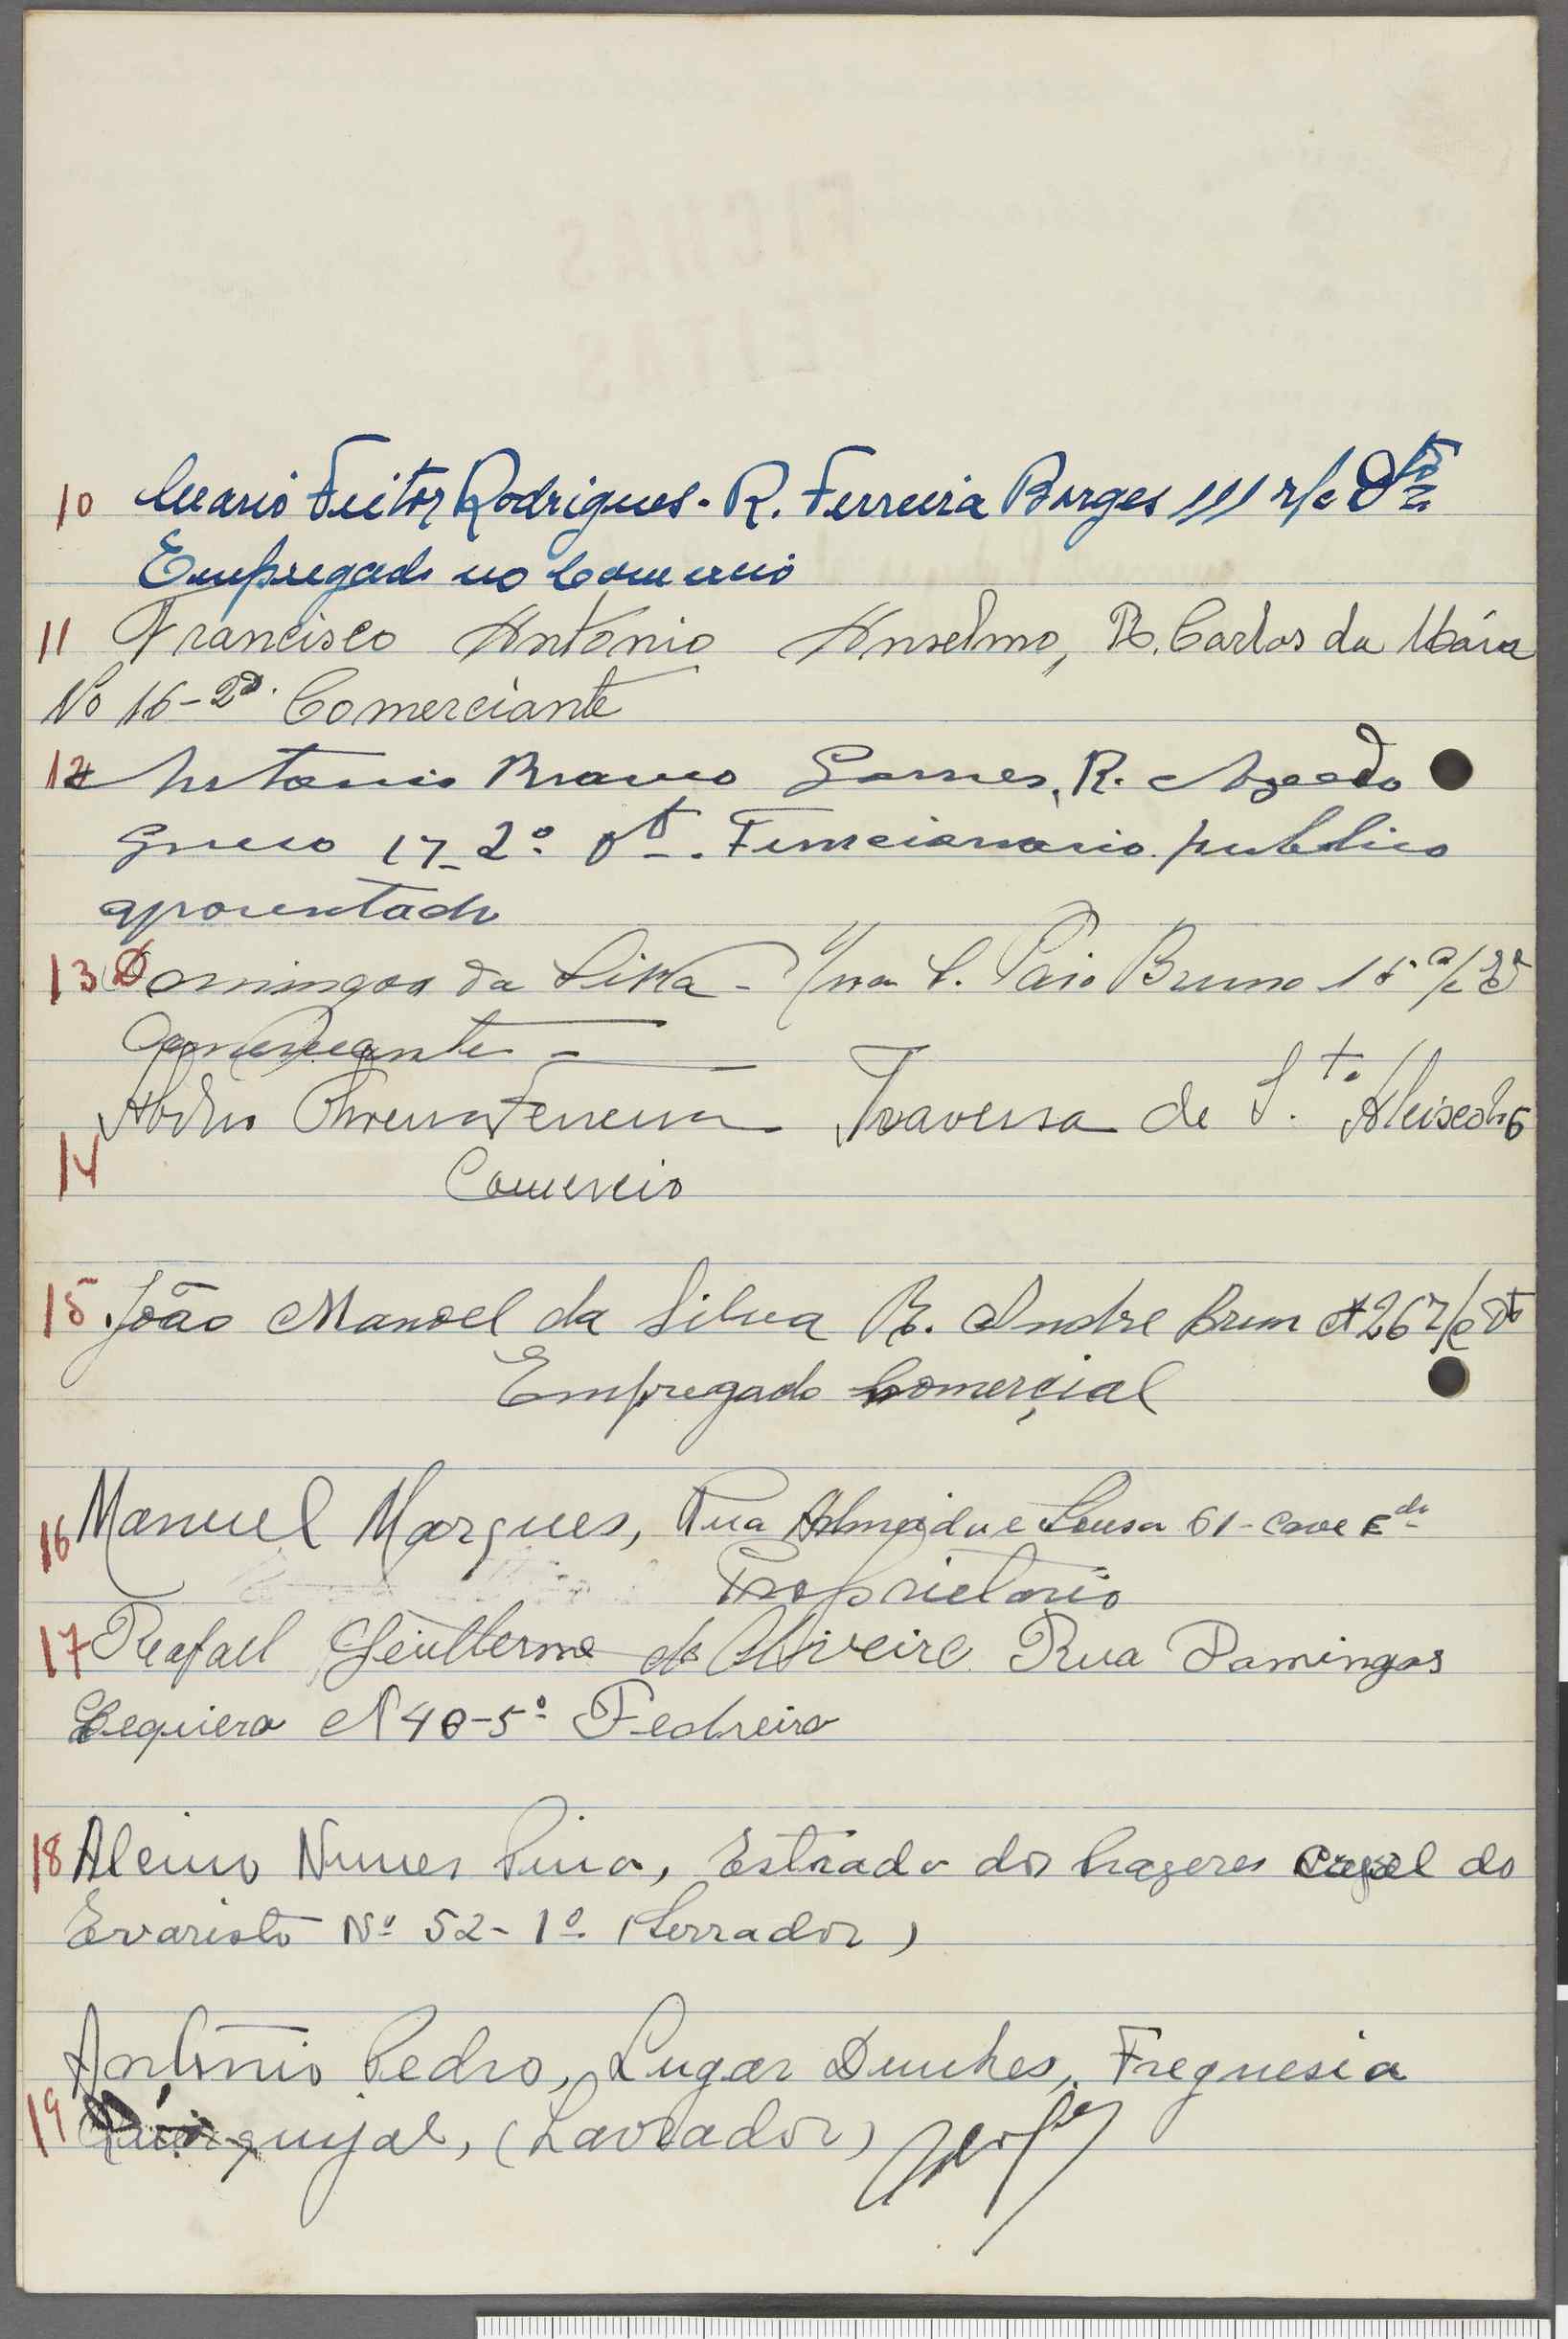 10 Mario Feitor Rodrigues - R. Ferreira Borges 111 r/c Dto
Empregado no Comercio
11 Francisco António Anselmo, R. Carlos da Maia
No 16-2º. Comerciante
12 Antonio Gomes, R. Azedo
Gneco 17_2º. Dt. Funcionario publico
aposentado
13 Domingos da Silva - Rua S. Paio Bruno 15 r/c
Comerciante -
14 Ferreira Travessa de S.to Aleixo 6
Comercio
15 João Manoel da Silva R. Andre Brun 26 r/c Dt
Empregado Comerçial
16 Manuel Marques, Rua Almeida e Sousa 61 - cave Eda
Proprietario
17 Rafael Geulherme de Oliveire Rua Damingos
Cequiera N 40-5º Pedreiro
18 Alcino Nunes Pina, Estrada dos Prazeres casal do
Evaristo Nº 52-1º. (Serrador)
19 António Pedro, Lugar Freguesia
(Lavrador)